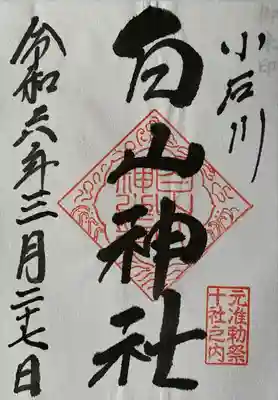 小石川
元准勅祭
十社之内
白山神社
令和六年三月二十七日